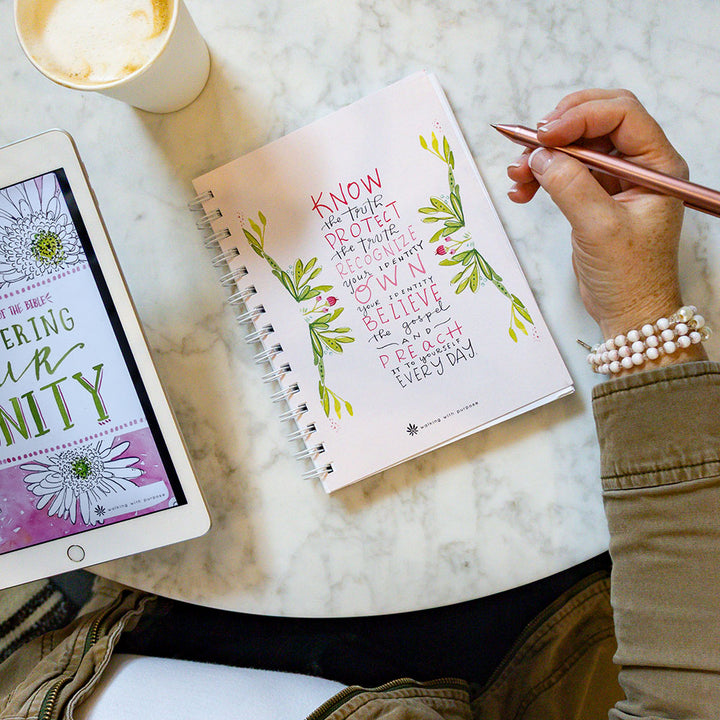 OF THE BIBLE
ERING
ur
NITY
walking with purpose
KNOW
the truth
PROTECT
the truth
RECOGNIZE
your IDENTITY
OWN
YOUR IDENTITY
BELIEVE
the gospel
AND
PREACH
IT TO YOURSELF
EVERY DAY
walking with purpose